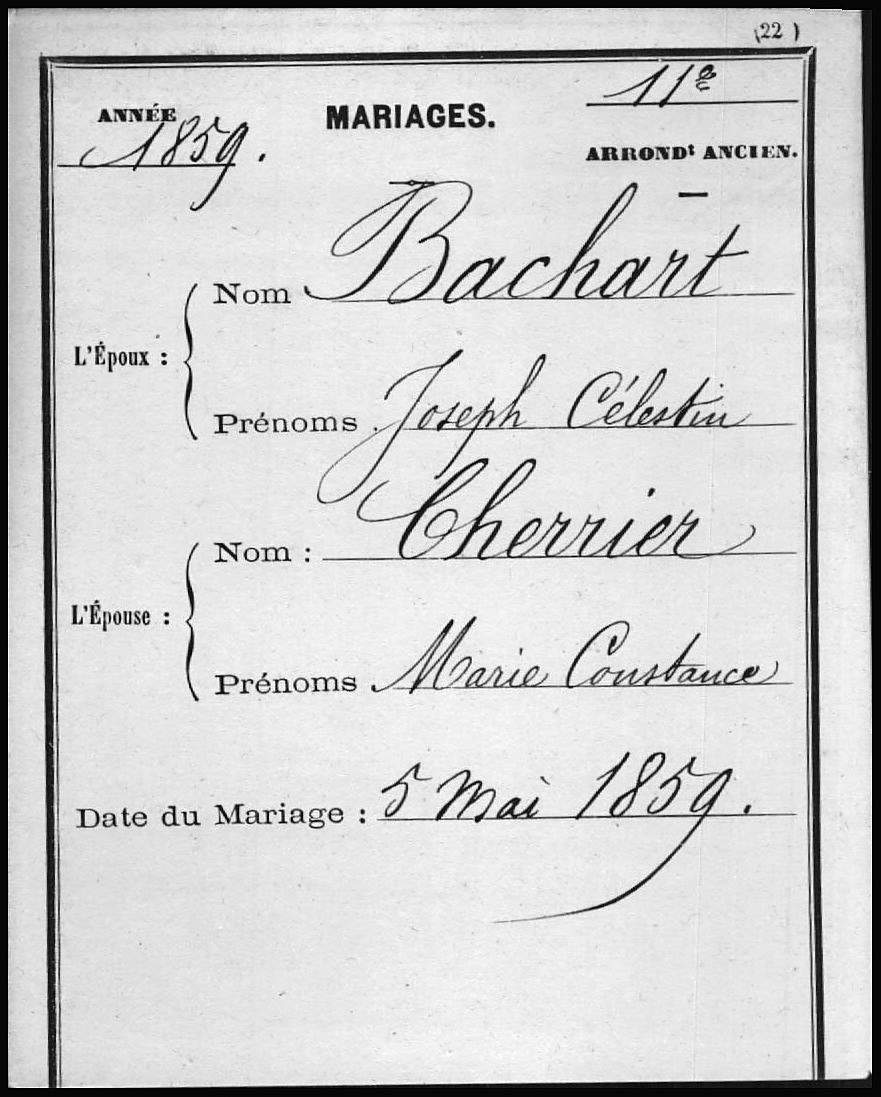 (22)
ANNÉE
1859.
MARIAGES.
11e
ARRONDt ANCIEN.
L'Époux :
Nom Bachart
Prénoms Joseph Célestin
L'Épouse :
Nom : Cherrier
Prénoms Marie Constance
Date du Mariage : 5 Mai 1859.